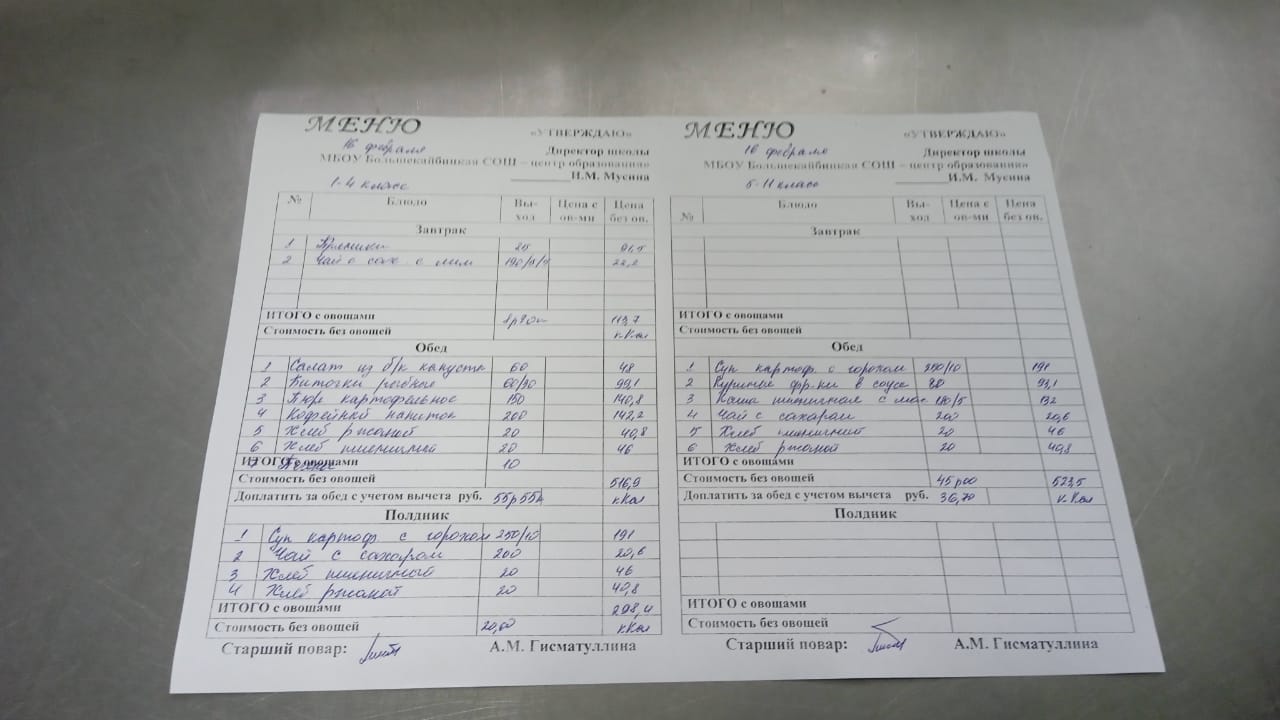 МЕНЮ
«УТВЕРЖДАЮ»
16 февраля
Директор школы
МБОУ Большекайбицкая СОШ – центр образования»
И.М. Мусина
1-4 класс
№ Блюдо Вы-ход Цена с ов-ми Цена без ов.
Завтрак
1 25 91,5
2 Чай с сах. с лим 22,2
ИТОГО с овощами 113,7
Стоимость без овощей кКал
Обед
1 Салат из б/к капусты 60 48
2 Биточки рыбные 60/30 99,1
3 Пюре картофельное 150 140,8
4 Кофейный напиток 200 142,2
5 Хлеб ржаной 20 40,8
6 Хлеб пшеничный 20 46
7 10
ИТОГО с овощами
Стоимость без овощей 516,9
Доплатить за обед с учетом вычета руб. 55р55к кКал
Полдник
1 Суп картоф. с горохом 250/10 191
2 Чай с сахаром 200 20,6
3 Хлеб пшеничный 20 46
4 Хлеб ржаной 20 40,8
ИТОГО с овощами 298,4
Стоимость без овощей 20,60 кКал
Старший повар: А.М. Гисматуллина
МЕНЮ
«УТВЕРЖДАЮ»
16 февраля
Директор школы
МБОУ Большекайбицкая СОШ – центр образования»
И.М. Мусина
5-11 класс
№ Блюдо Вы-ход Цена с ов-ми Цена без ов.
Завтрак
ИТОГО с овощами
Стоимость без овощей
Обед
1 Суп картоф. с горохом 250/10 191
2 Куриные фр-ки в соусе 80 93,1
3 Каша пшеничная с мас. 180/5 132
4 Чай с сахаром 200 20,6
5 Хлеб пшеничный 20 46
6 Хлеб ржаной 20 40,8
ИТОГО с овощами
Стоимость без овощей 45р00 523,5
Доплатить за обед с учетом вычета руб. 36,70 кКал
Полдник
ИТОГО с овощами
Стоимость без овощей
Старший повар: А.М. Гисматуллина